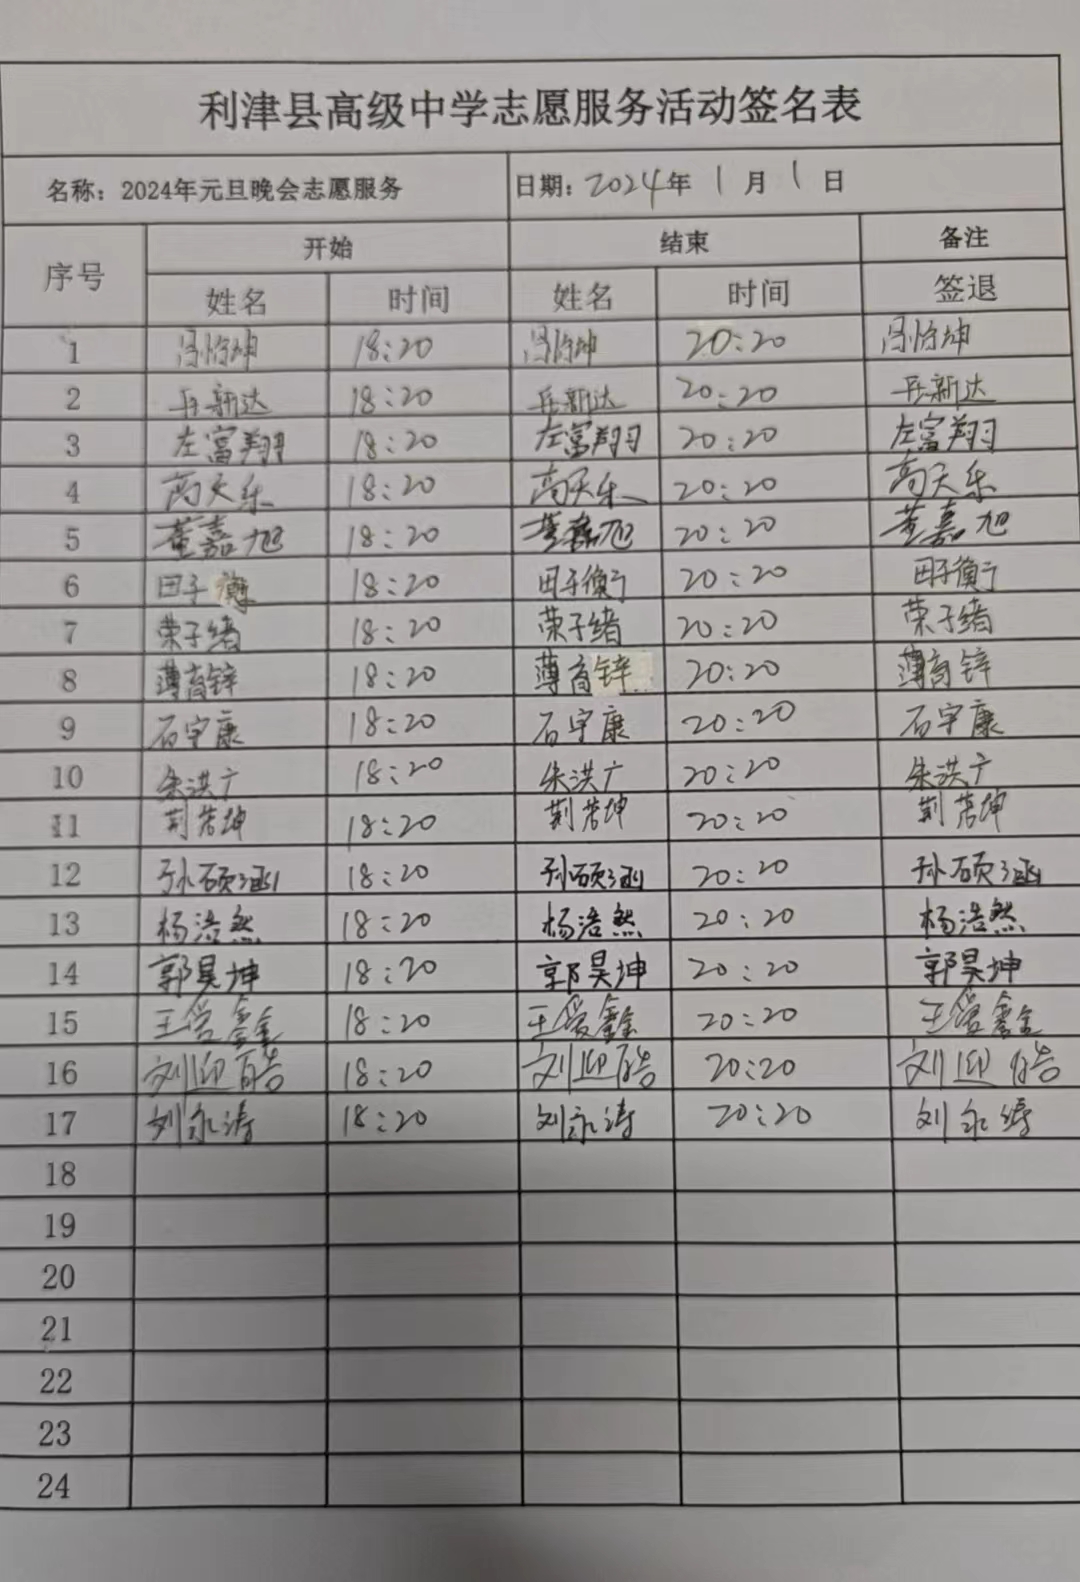 利津县高级中学志愿服务活动签名表
名称：2024年元旦晚会志愿服务 日期：2024年 1月 1日
序号 开始 结束 备注
姓名 时间 姓名 时间 签退
1 18:20 20:20
2 新达 18:20 新达 20:20 新达
3 左富翔 18:20 左富翔 20:20 左富翔
4 高天乐 18:20 高天乐 20:20 高天乐
5 董嘉旭 18:20 董嘉旭 20:20 董嘉旭
6 田子衡 18:20 田子衡 20:20 田子衡
7 荣子绪 18:20 荣子绪 20:20 荣子绪
8 薄育锌 18:20 薄育锌 20:20 薄育锌
9 石宇康 18:20 石宇康 20:20 石宇康
10 朱洪广 18:20 朱洪广 20:20 朱洪广
11 荆若坤 18:20 荆若坤 20:20 荆若坤
12 孙硕涵 18:20 孙硕涵 20:20 孙硕涵
13 杨浩然 18:20 杨浩然 20:20 杨浩然
14 郭昊坤 18:20 郭昊坤 20:20 郭昊坤
15 王爱鑫 18:20 王爱鑫 20:20 王爱鑫
16 刘迎皓 18:20 刘迎皓 20:20 刘迎皓
17 刘永涛 18:20 刘永涛 20:20 刘永涛
18
19
20
21
22
23
24